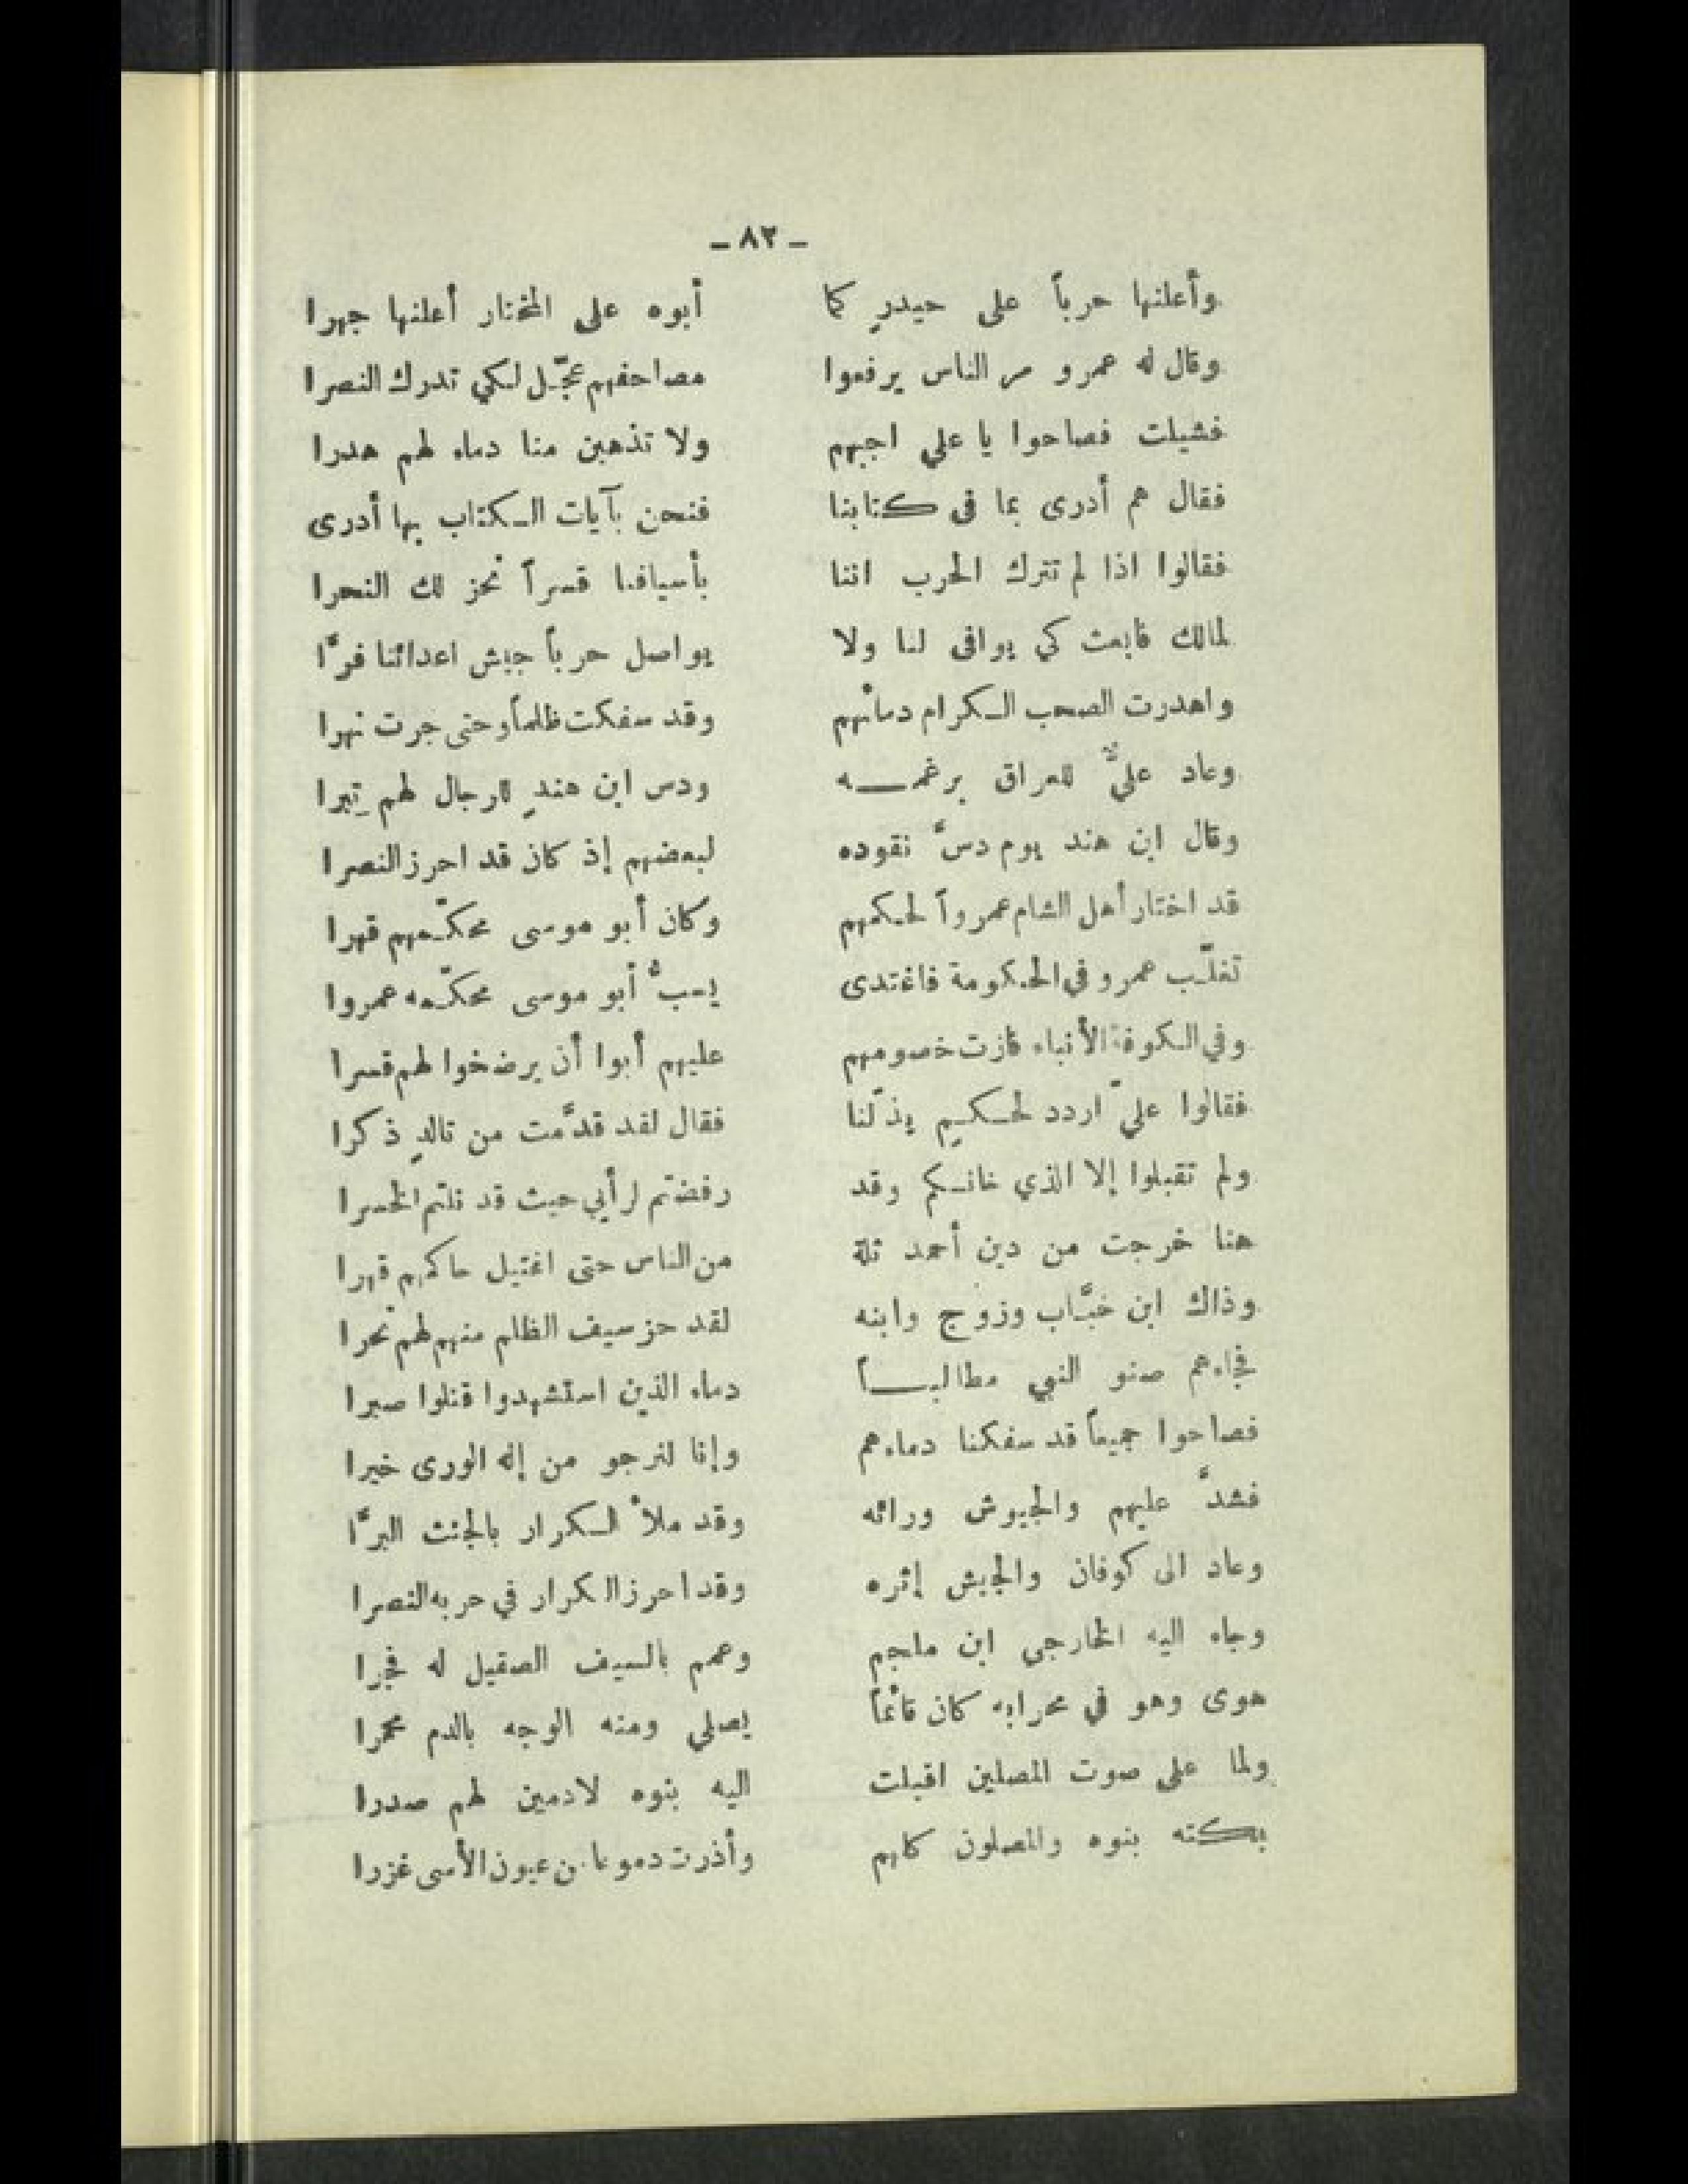 - ٨٢ -
وأعلنها حرباً على حيدرٍ كما أبوه على المختار أعلنها جهرا
وقال له عمرو مر الناس يرفعوا مصاحفهم عجّل لكي تدرك النصرا
فشيلت فصاحوا يا علي اجبهم ولا تذهبن منا دماء لهم هدرا
فقال هم أدرى بما في كتابنا فنحن بآيات الكتاب بها أدرى
فقالوا اذا لم تترك الحرب اننا بأسيافنا قسراً نحز لك النحرا
لمالك فابعث كي يوافى لنا ولا يواصل حرباً جيش اعدائنا فرَّا
واهدرت الصحب الكرام دمائهم وقد سفكت ظلماً وحتى جرت نهرا
وعاد عليٌّ للعراق برغمه ودس ابن هندٍ للرجال لهم تِبرا
وقال ابن هند يوم دسَّ نقوده لبعضهم إذ كان قد احرز النصرا
قد اختار أهل الشام عمرواً لحكمهم وكان أبو موسى محكّمهم قهرا
تغلّب عمرو في الحكومة فاغتدى يسبُّ أبو موسى محكّمه عمروا
وفي الكوفة الأنباء فازت خصومهم عليهم أبوا أن يرضخوا لهم قسرا
فقالوا عليّ اردد لحكمٍ يذلّنا فقال لقد قدَّمت من تالدٍ ذكرا
ولم تقبلوا إلا الذي خانكم وقد رفضتم لرأيي حيث قد نلتم الخسرا
هنا خرجت من دين أحمد ثلة من الناس حتى اغتيل حاكمهم قهرا
وذاك ابن خبَّاب وزوج وابنه لقد حز سيف الظلم منهم لهم نحرا
فجاءهم صنو النبي مطالباً دماء الذين استشهدوا قتلوا صبرا
فصاحوا جميعاً قد سفكنا دماءهم وإنا لنرجو من إله الورى خيرا
فشدَّ عليهم والجيوش ورائه وقد ملأ الكرار بالجثث البرَّا
وعاد الى كوفان والجيش إثره وقد احرز الكرار في حربه النصرا
وجاء اليه الخارجي ابن ملجم وعمم بالسيف الصقيل له فجرا
هوى وهو في محرابه كان قائماً يصلي ومنه الوجه بالدم محمرا
ولما على صوت المصلين اقبلت اليه بنوه لادمين لهم صدرا
بكته بنوه والمصلون كلهم وأذرت دموعا من عيون الأسى غزرا